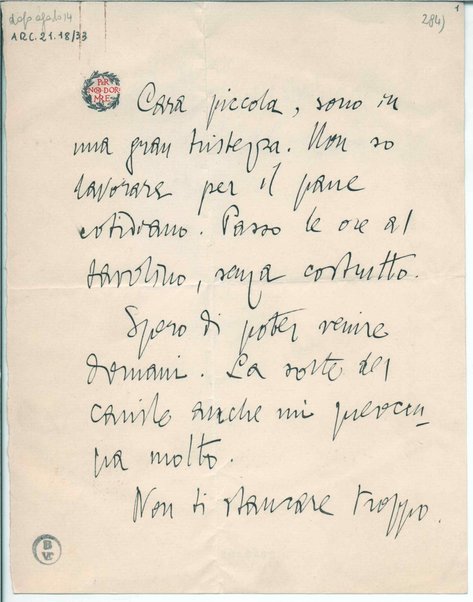 dopo agosto 14
284)
1
ARC. 21. 18/33
PER
NON DOR
MIRE
Cara piccola, sono in
una gran tristezza. Non so
lavorare per il pane
cotidiano. Passo le ore al
tavolino, senza costrutto.
Spero di poter venire
domani. La sorte del
canile anche mi preoccu=
pa molto.
Non ti stancare troppo.